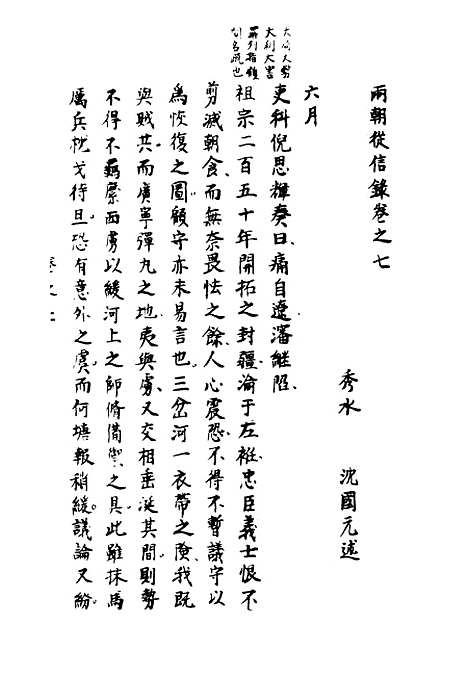 兩朝從信錄卷之七
秀水　沈國元述
六月
吏科倪思輝奏曰、痛自遼瀋繼陷、
祖宗二百五十年開拓之封疆淪于左袵、忠臣義士恨不
剪滅朝食、而無奈畏怯之餘、人心震恐、不得不暫議守以
為恢復之圖、顧守亦未易言也。三岔河一衣帶之險、我既
與賊共。而廣寧彈丸之地、夷與虜、又交相垂涎其間。則勢
不得不羈縻西虜以緩河上之師脩備禦之具、此雖抹馬
厲兵枕戈待旦。恐有意外之虞。而何塘報稍緩。議論又紛。
大利大害
卷之七